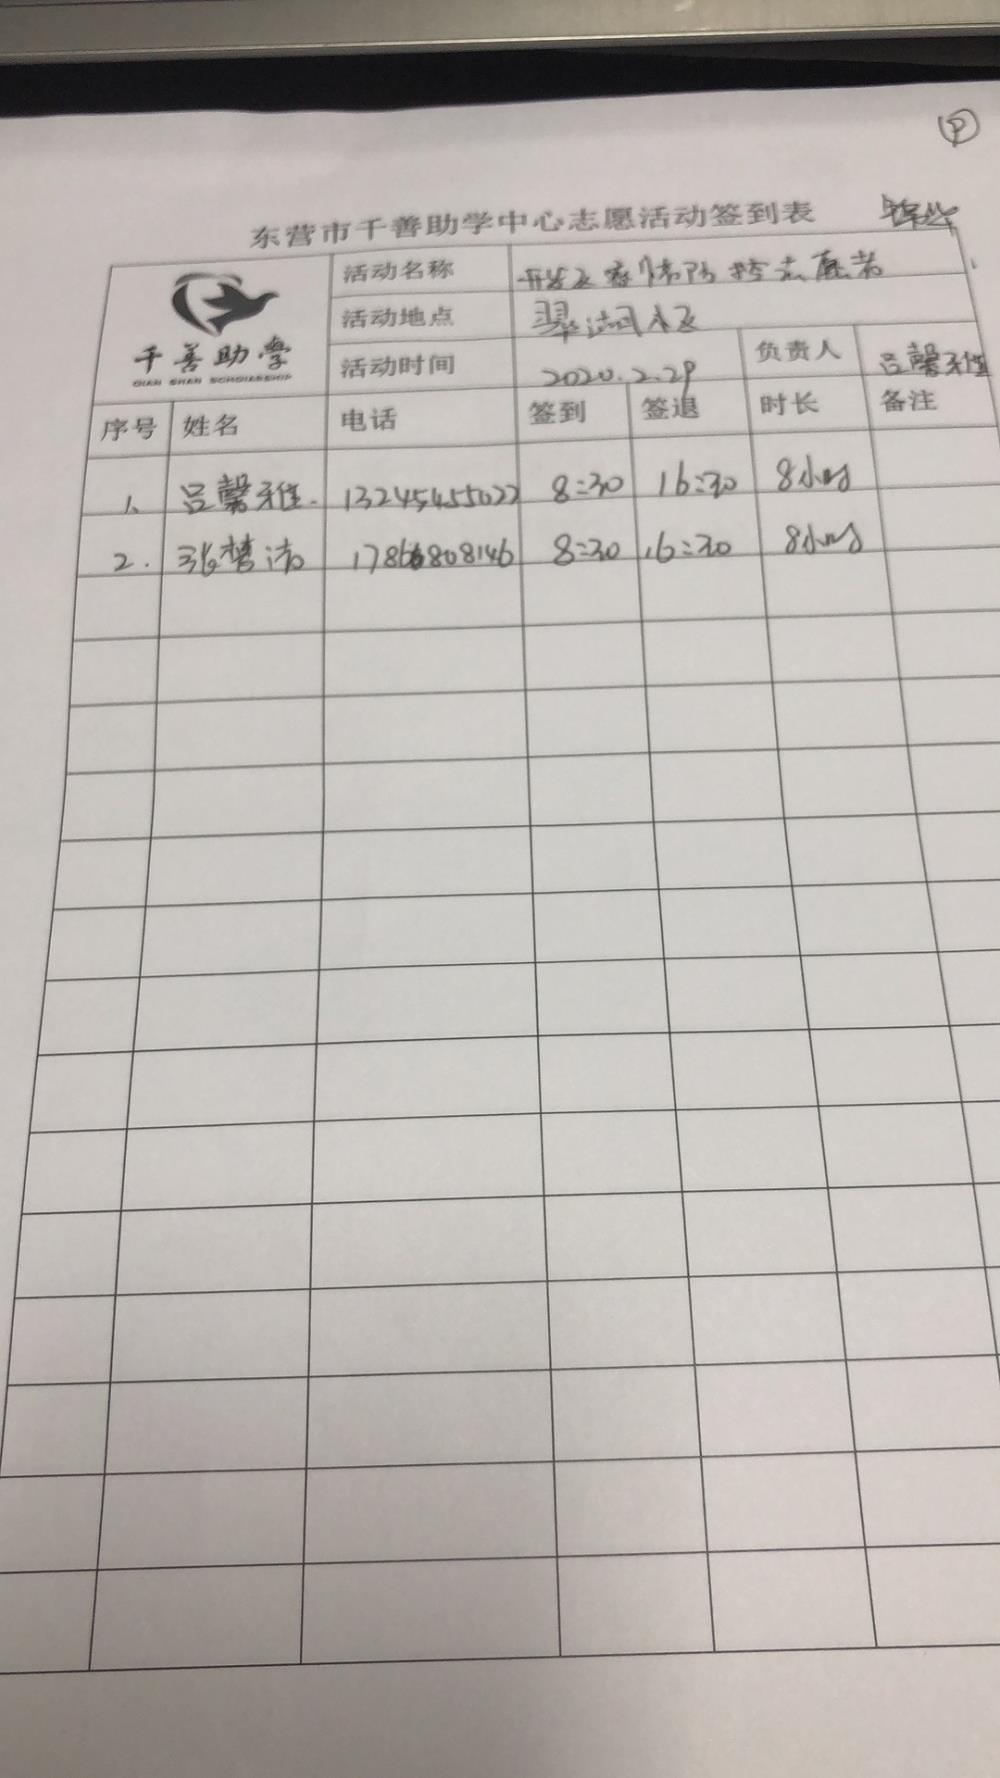 东营市千善助学中心志愿活动签到表
千善助学
QIAN SHAN SCHOLARSHIP
活动名称 开发区疫情防控志愿者
活动地点 翠湖小区
活动时间 2020.2.29 负责人 吕馨雅
序号 姓名 电话 签到 签退 时长 备注
1、 吕馨雅 13245455022 8:30 16:30 8小时
2. 张楚 17866808146 8:30 16:30 8小时